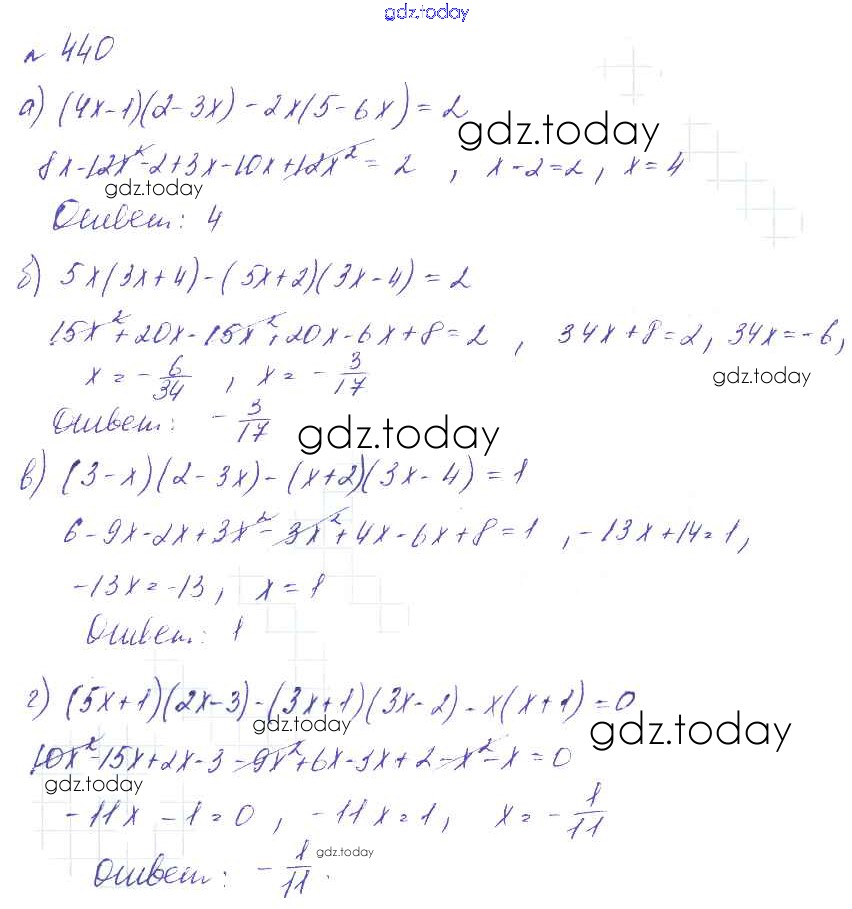 gdz.today
№ 440
а) (4x-1)(2-3x)-2x(5-6x)=2
gdz.today
8x-12x²-2+3x-10x+12x²=2, x-2=2, x=4
gdz.today
Ответ: 4
б) 5x(3x+4)-(5x+2)(3x-4)=2
15x²+20x-15x²+20x-6x+8=2, 34x+8=2, 34x=-6,
x=-6/34, x=-3/17
gdz.today
Ответ: -3/17
gdz.today
в) (3-x)(2-3x)-(x+2)(3x-4)=1
6-9x-2x+3x²-3x²+4x-6x+8=1, -13x+14=1,
-13x=-13, x=1
Ответ: 1
г) (5x+1)(2x-3)-(3x+1)(3x-2)-x(x+1)=0
gdz.today
gdz.today
10x²-15x+2x-3-9x²+6x-3x+2-x²-x=0
gdz.today
-11x-1=0, -11x=1, x=-1/11
gdz.today
Ответ: -1/11.